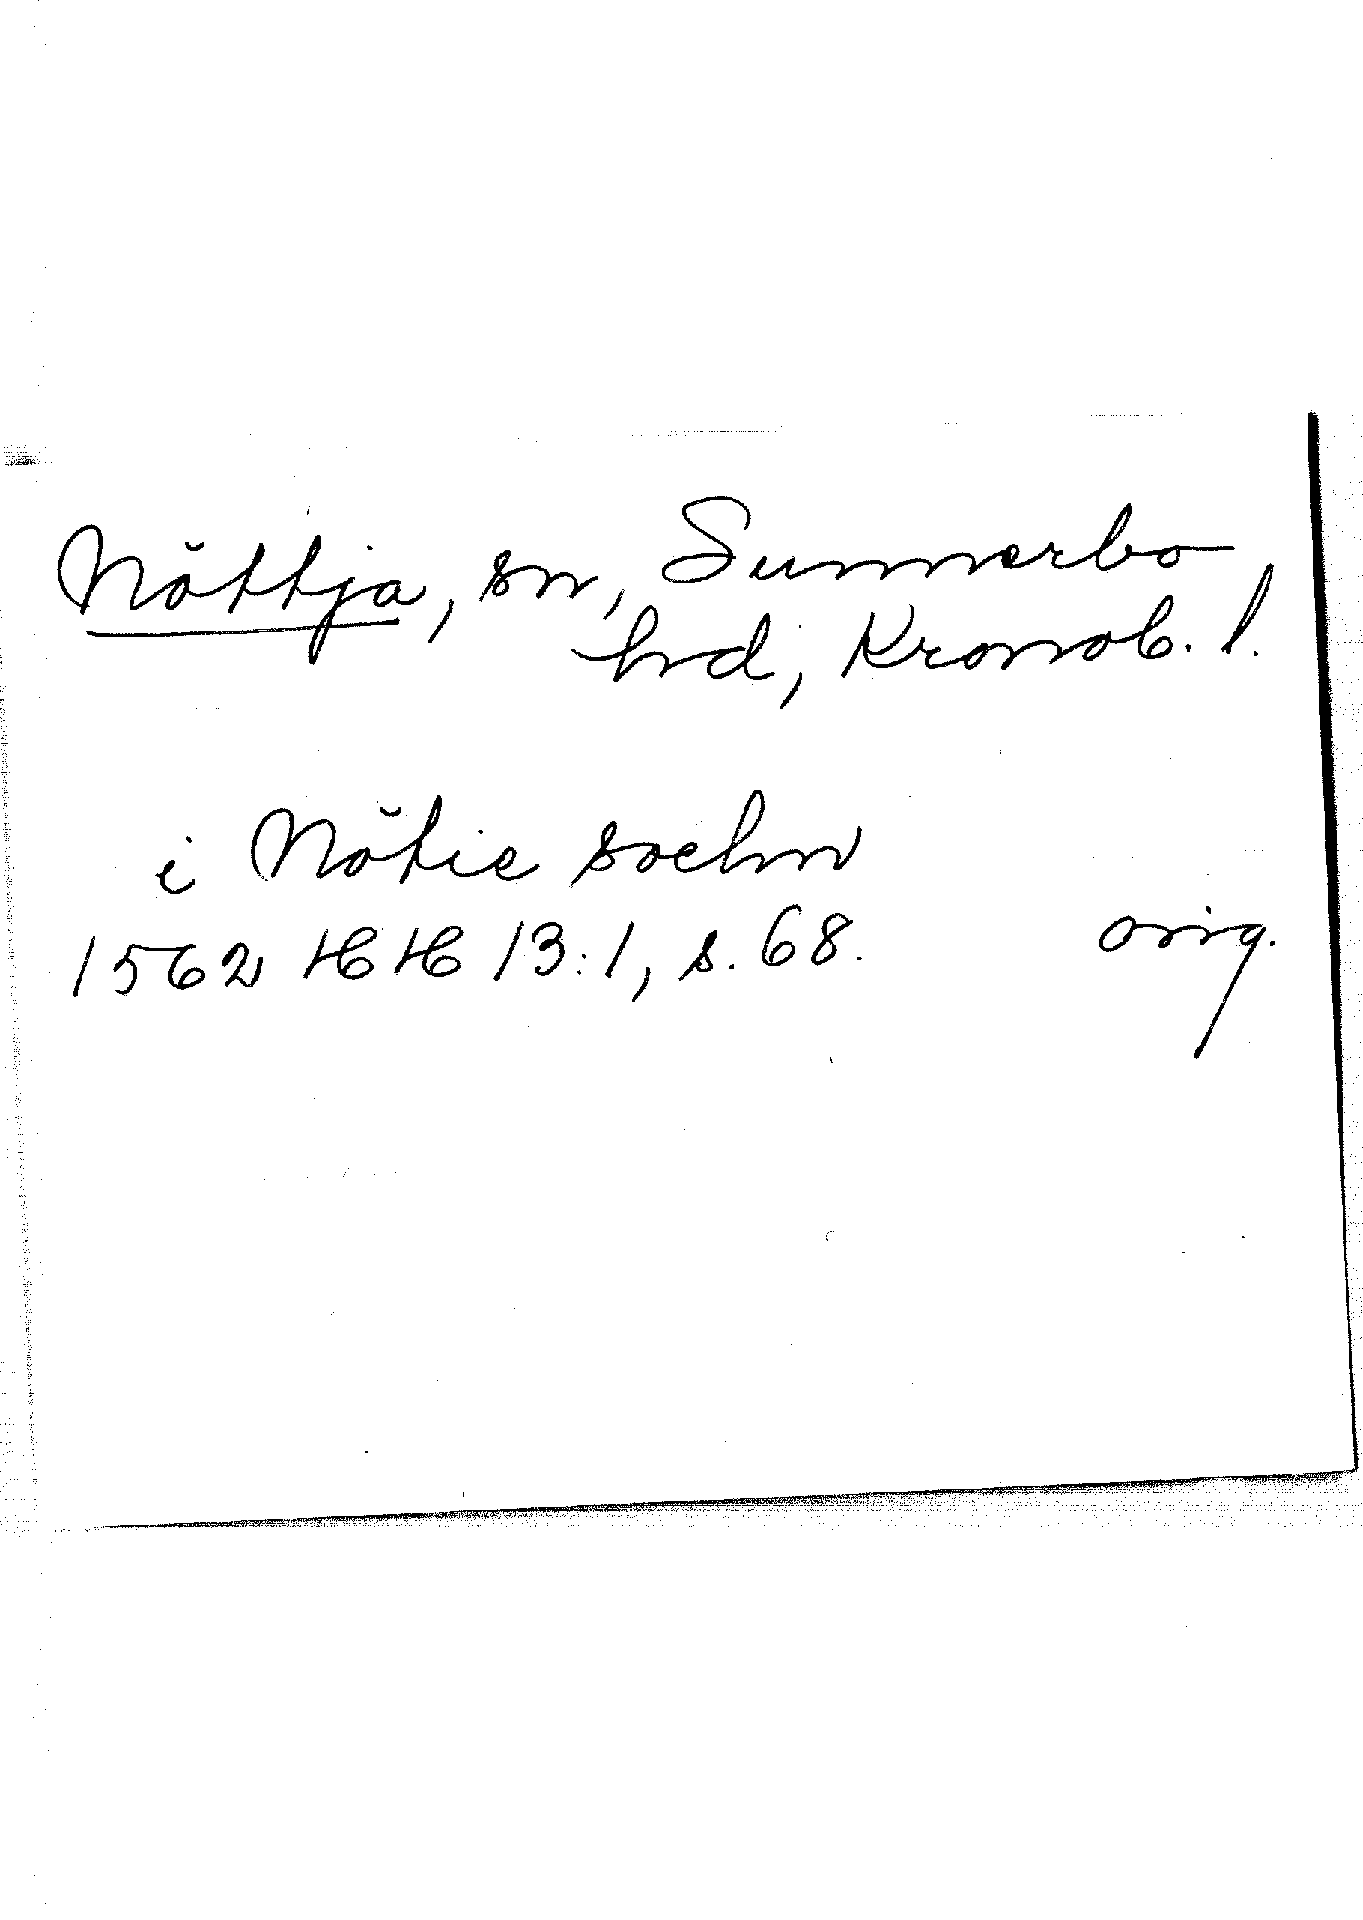 Nöttja, sn, Sunnerbo
hd, Kronob. l.
i Nötie sochn
1562 HH 13:1, s. 68. orig.